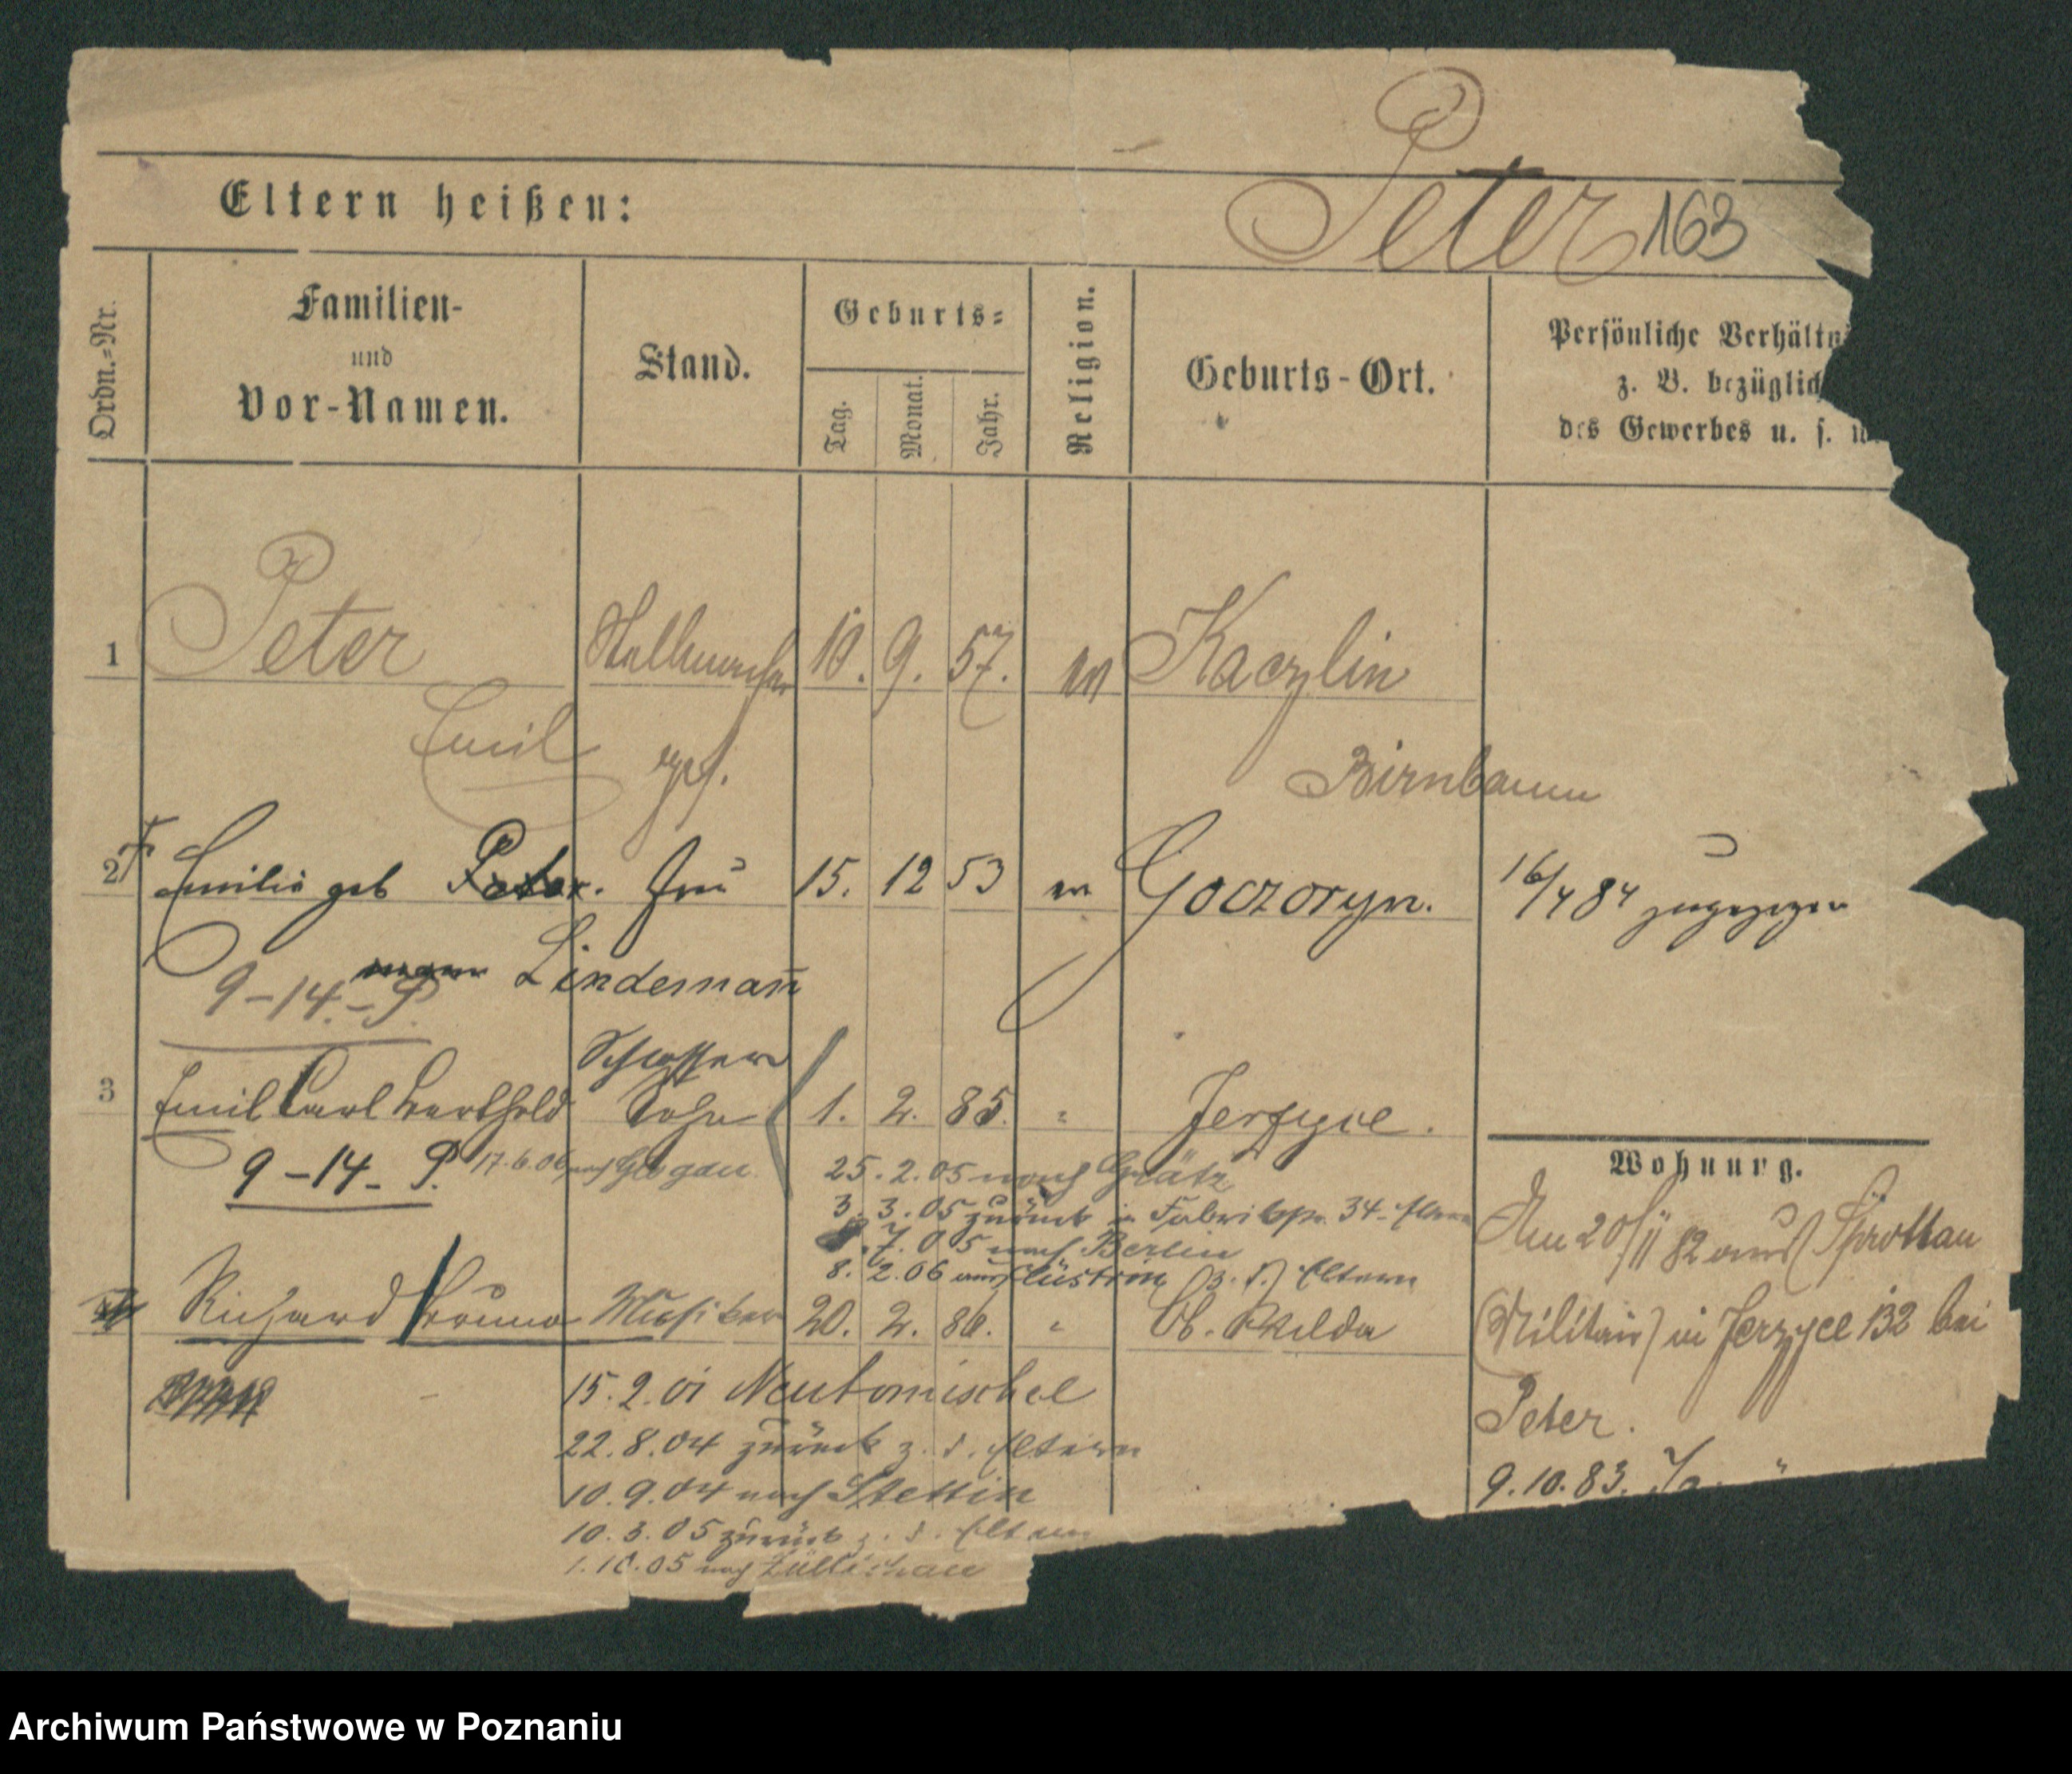 Peter 163
Eltern heißen:
Ordn.=Nr.
Familien-
und
Vor-Namen.
Stand.
Geburts=
Tag.
Monat.
Jahr.
Religion.
Geburts-Ort.
Persönliche Verhältn
z. B. bezüglich
des Gewerbes u. s. w
1 Peter 10. 9. 57. ev Kaczlin
Emil
Birnbaum
2 Emilie geb Peter. Frau 15. 12 53 ev Goczoryn. 16/4 84 zugezogen
Lindemann
9-14.-P.
Schlosser
3 Emil Carl Berthold Sohn 1. 2. 85. " Jerzyce.
9-14- P. 17.6.06 nach Glogau
25.2.05 nach Grätz
3.3.05 zurück in Fabrikstr. 34. Eltern
7.05 nach Berlin
8.2.06 aus Cüstrin (z. d.) Eltern
Richard Bruno Musiker 20. 2. 86. " Ob. Wilda
15.2.01 Neutomischel
22.8.04 zurück z. d. Eltern
10.9.04 nach Stettin
10.3.05 zurück z. d. Eltern
1.10.05 nach Züllichau
Wohnung.
Am 20/11 82 aus Sprottau
(Militair) in Jerzyce 132 bei
Peter.
9.10.83. "
Archiwum Państwowe w Poznaniu